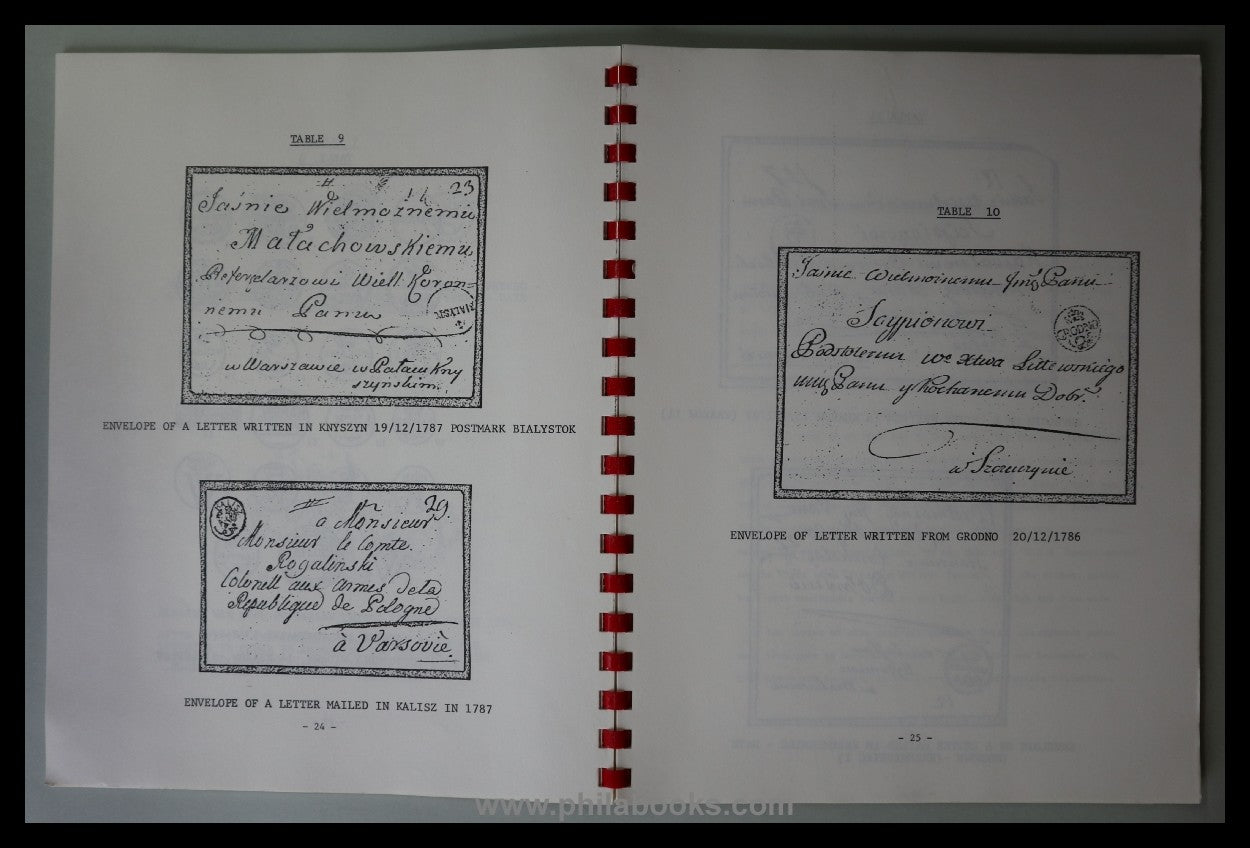 TABLE 9
23
Jaśnie Wielmożnemu
Małachowskiemu
Referendarzowi Wiell Koron=
nemu Panu
BIALYSTOK
w Warszawie w Pałacu Kny
szynskim.
ENVELOPE OF A LETTER WRITTEN IN KNYSZYN 19/12/1787 POSTMARK BIALYSTOK
29.
a Monsieur
Monsieur le Comte.
Rogalinski
Colonell aux armes dela
Republique de Pologne
à Varsovie.
ENVELOPE OF A LETTER MAILED IN KALISZ IN 1787
- 24 -
TABLE 10
Jaśnie Wielmożnemu Panu
GRODNO
Scypionowi
Podstolemu We Xtwa Littewskiego
Panu y Kochanemu Dobr.
w Szczuczynie
ENVELOPE OF LETTER WRITTEN FROM GRODNO 20/12/1786
- 25 -
www.philabooks.com